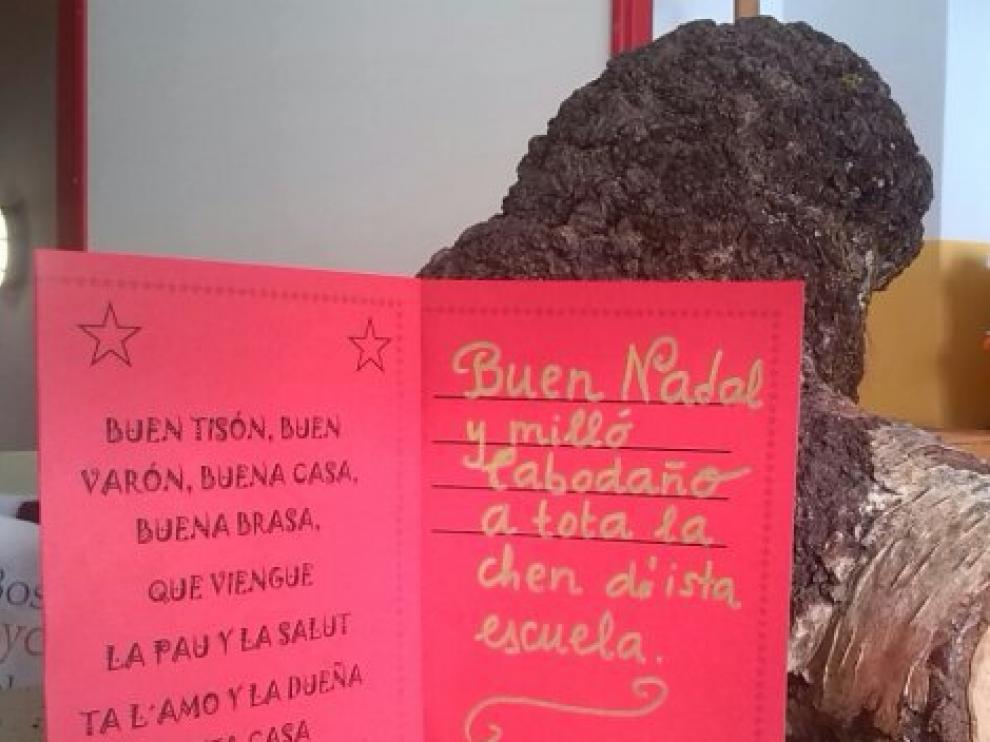 BUEN TISÓN, BUEN
VARÓN, BUENA CASA,
BUENA BRASA,
QUE VIENGUE
LA PAU Y LA SALUT
TA L'AMO Y LA DUEÑA
CASA
Buen Nadal
y milló
Cabodaño
a tota la
chen d'ista
escuela.